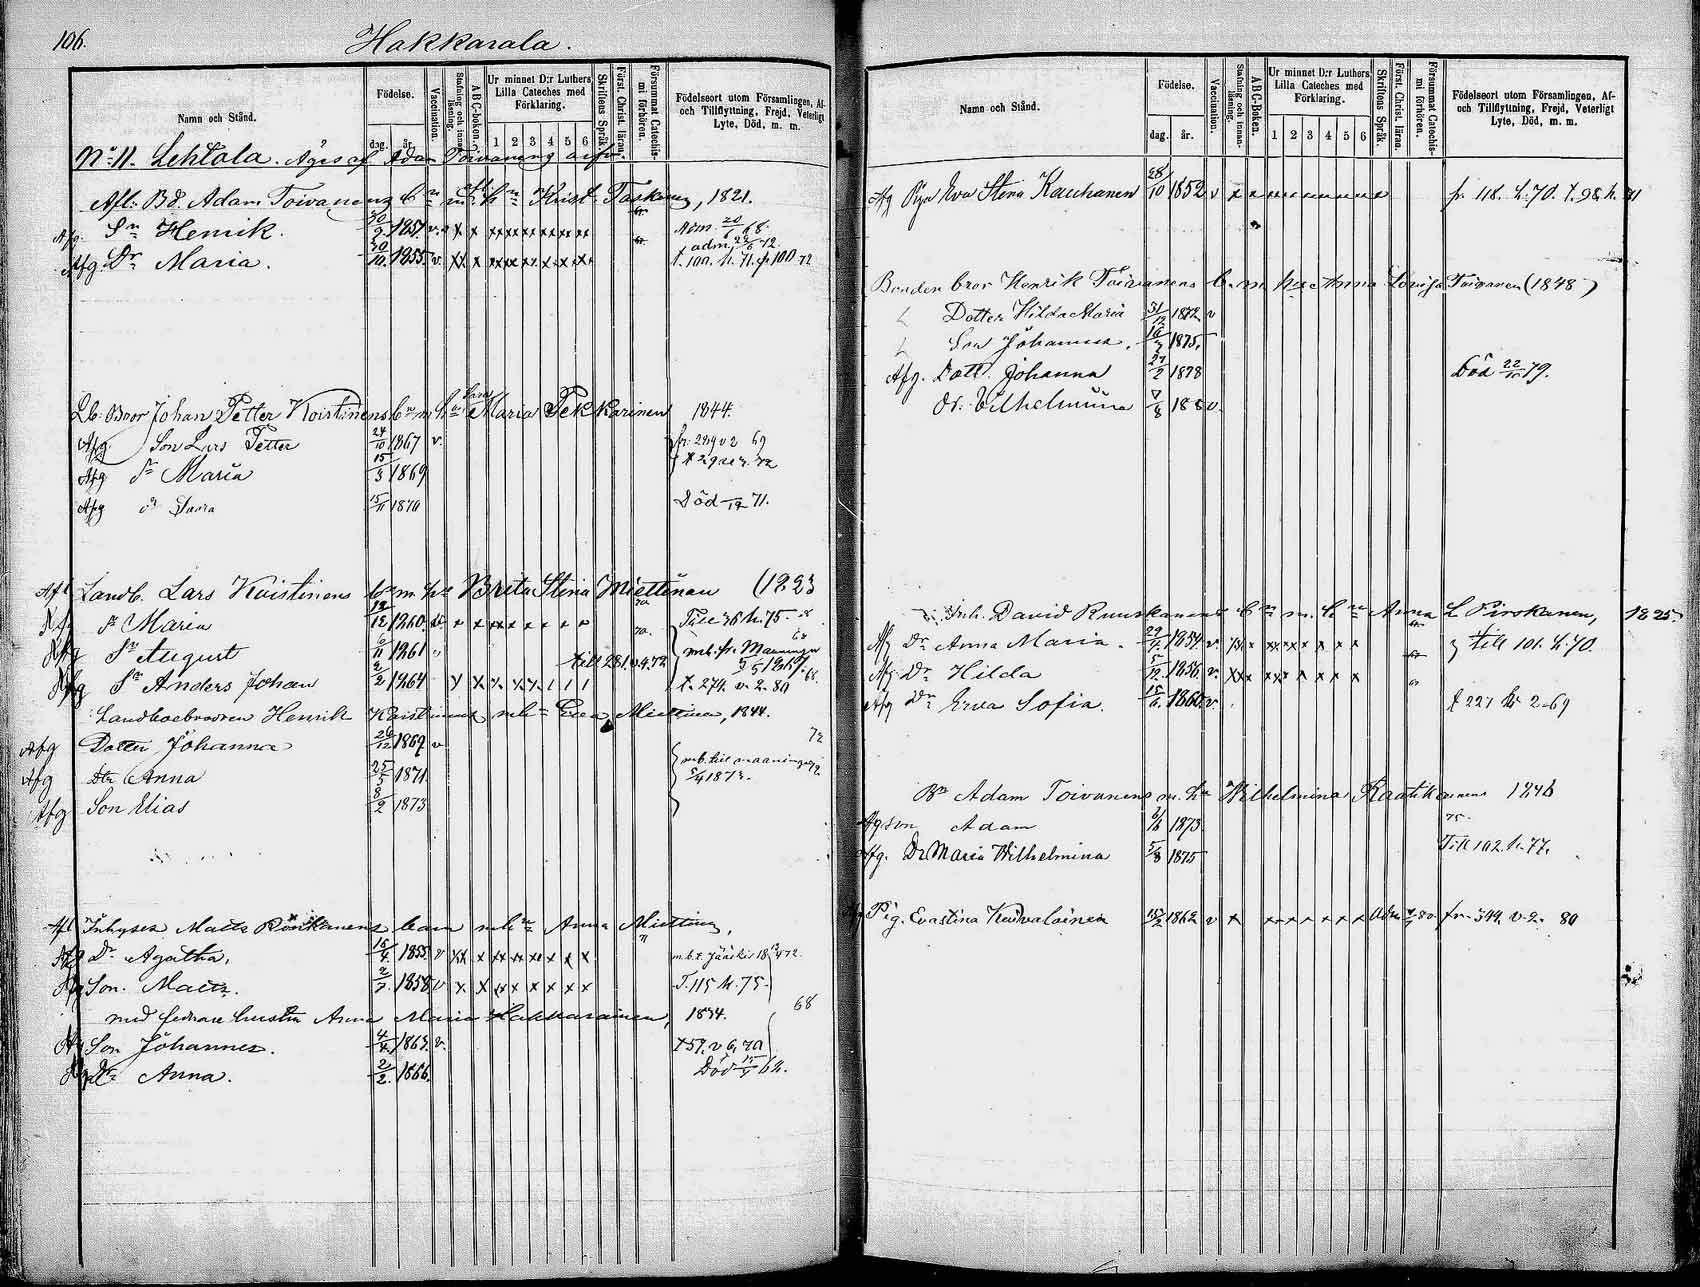 106.
Hakkarala.
Namn och Stånd.
Födelse.
dag. år.
Vaccination.
Stafning och innan-läsning.
ABC-boken.
Ur minnet D:r Luthers Lilla Cateches med Förklaring.
1 2 3 4 5 6
Skriftens Språk.
Först. Christ. läran.
Försummat Catechis-mi förhören.
Födelseort utom Församlingen, Af- och Tillflyttning, Frejd, Veterligt Lyte, Död, m. m.
N:o 11. Lehtola. Äges af Adam Toivanens arfv.
Afl. Bd. Adam Toivanens b:n m. h:u Krist. Taskinen, 1821.
Afg. S:n Henrik. 1851 v. x x x x x x x x Adm. 20/6 68.
Afg. D:r Maria. 30/10 1855 v. x x x x x x x x adm. 72
t. 100. h. 71. fr 100 72
Lb. Bror Johan Petter Koistinens b:n m. h:u Maria Pekkarinen 1844.
Afg Son Lars Petter 24/10 1867 v.
Afg d:r Maria 15/3 1869
Afg d:r Saara 15/11 1870 Död /12 71.
Afl Landb. Lars Koistinens b:n m. h:u Brita Stina Miettinen (1823
d:r Maria 12/12 1860 x x x x x x x x Till 36 h. 75.
Afg S:n August 6/11 1861 till 281. v. 9. 72
Afg S:n Anders Johan 2/2 1864 t. 274. v. 2. 80
Landboebrodren Henrik Koistinens m. h:u Eva Miettinen, 1844.
Afg Dotter Johanna 26/12 1869 v
72
Afg Dtr Anna 25/5 1871 m.b. till Maaninga
Afg Son Elias 8/2 1873
Afl Inhyses Matts Röskanens barn m. h:u Anna Miettinen,
Afg D:r Agatha, 16/4 1855 v x x x x x x x x m.b.t. Jääskis
Afg Son. Matts. 1858 v x x x x x x x x T. 115 h. 75.
med senare hustru Anna Maria Hakkarainen, 1834.
68
Afg Son Johannes. 4/4 1863. v.
Afg D:r Anna. 2/2 1866. Död
Namn och Stånd.
Födelse.
dag. år.
Vaccination.
Stafning och innan-läsning.
ABC-boken.
Ur minnet D:r Luthers Lilla Cateches med Förklaring.
1 2 3 4 5 6
Skriftens Språk.
Först. Christ. läran.
Försummat Catechis-mi förhören.
Födelseort utom Församlingen, Af- och Tillflyttning, Frejd, Veterligt Lyte, Död, m. m.
Afg Piga Eva Stina Kauhanen 28/10 1852 v x x x x x x x x fr. 118. h. 70. t. 98. h. 71
Bonden bror Henrik Toivanens b. m. h:u Anna Lovisa Toivanen (1848)
Dotter Hilda Maria 31/12 1872 v
Son Johannes. 1875.
Afg. Dott. Johanna 27/2 1878 Död 22/10 79.
Dr. Vilhelmina 7/8 188 v.
Inh. David Ruuskanens b:n m. h:u Anna L. Pirskanen, 1825.
Afg D:r Anna Maria. 1854 v. x x x x x x x till 101. h. 70.
Afg. D:r Hilda 5/12 1856. v. x x x x x x x
Afg D:r Eva Sofia. 15/6 1860. v. t 227 2 69
B:n Adam Toivanens m. h:u Wilhelmina Raatikainens 1846
Afg son Adam 1873 75.
Afg. Dr Maria Wilhelmina 5/8 1875 Till 102. h. 77.
Pig. Evastina Kauvalainen 1862 v x x x x x x x 80 fr. 344. v. 2. 80